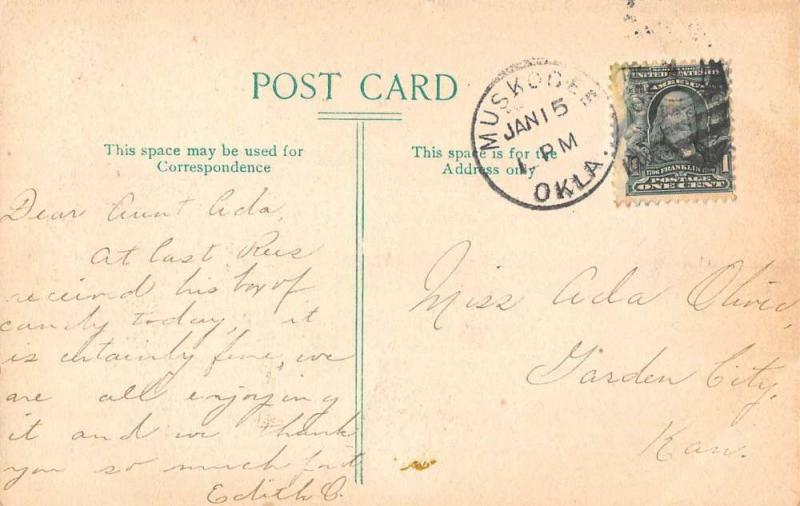 POST CARD
MUSKOGEE
JAN 15
1 - PM
OKLA.
UNITED STATES OF
AMERICA
1706 FRANKLIN 1790
POSTAGE
ONE CENT
1
This space may be used for
Correspondence
This space is for the
Address only
Dear Aunt Ada,
At last
received his box of
candy today, it
is certainly fine, we
are all enjoying
it and we thank
you so much for it
Edith O.
Miss Ada Olive,
Garden City,
Kan.